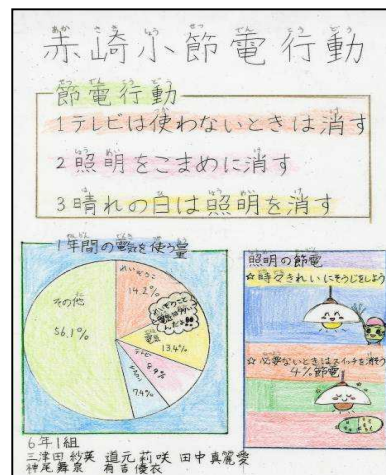 赤崎小節電行動
節電行動
1 テレビは使わないときは消す
2 照明をこまめに消す
3 晴れの日は照明を消す
1年間の電気を使う量
れいぞうこ
14.2%
電気
13.4%
テレビ
8.9%
エアコン
7.4%
その他
56.1%
照明の節電
☆時々きれいにそうじをしよう
☆必要ないときはスイッチを消そう
4%節電
6年1組
三津田 紗英 道元 莉咲 田中 真麗愛
神尾 舞泉 有吉 優衣